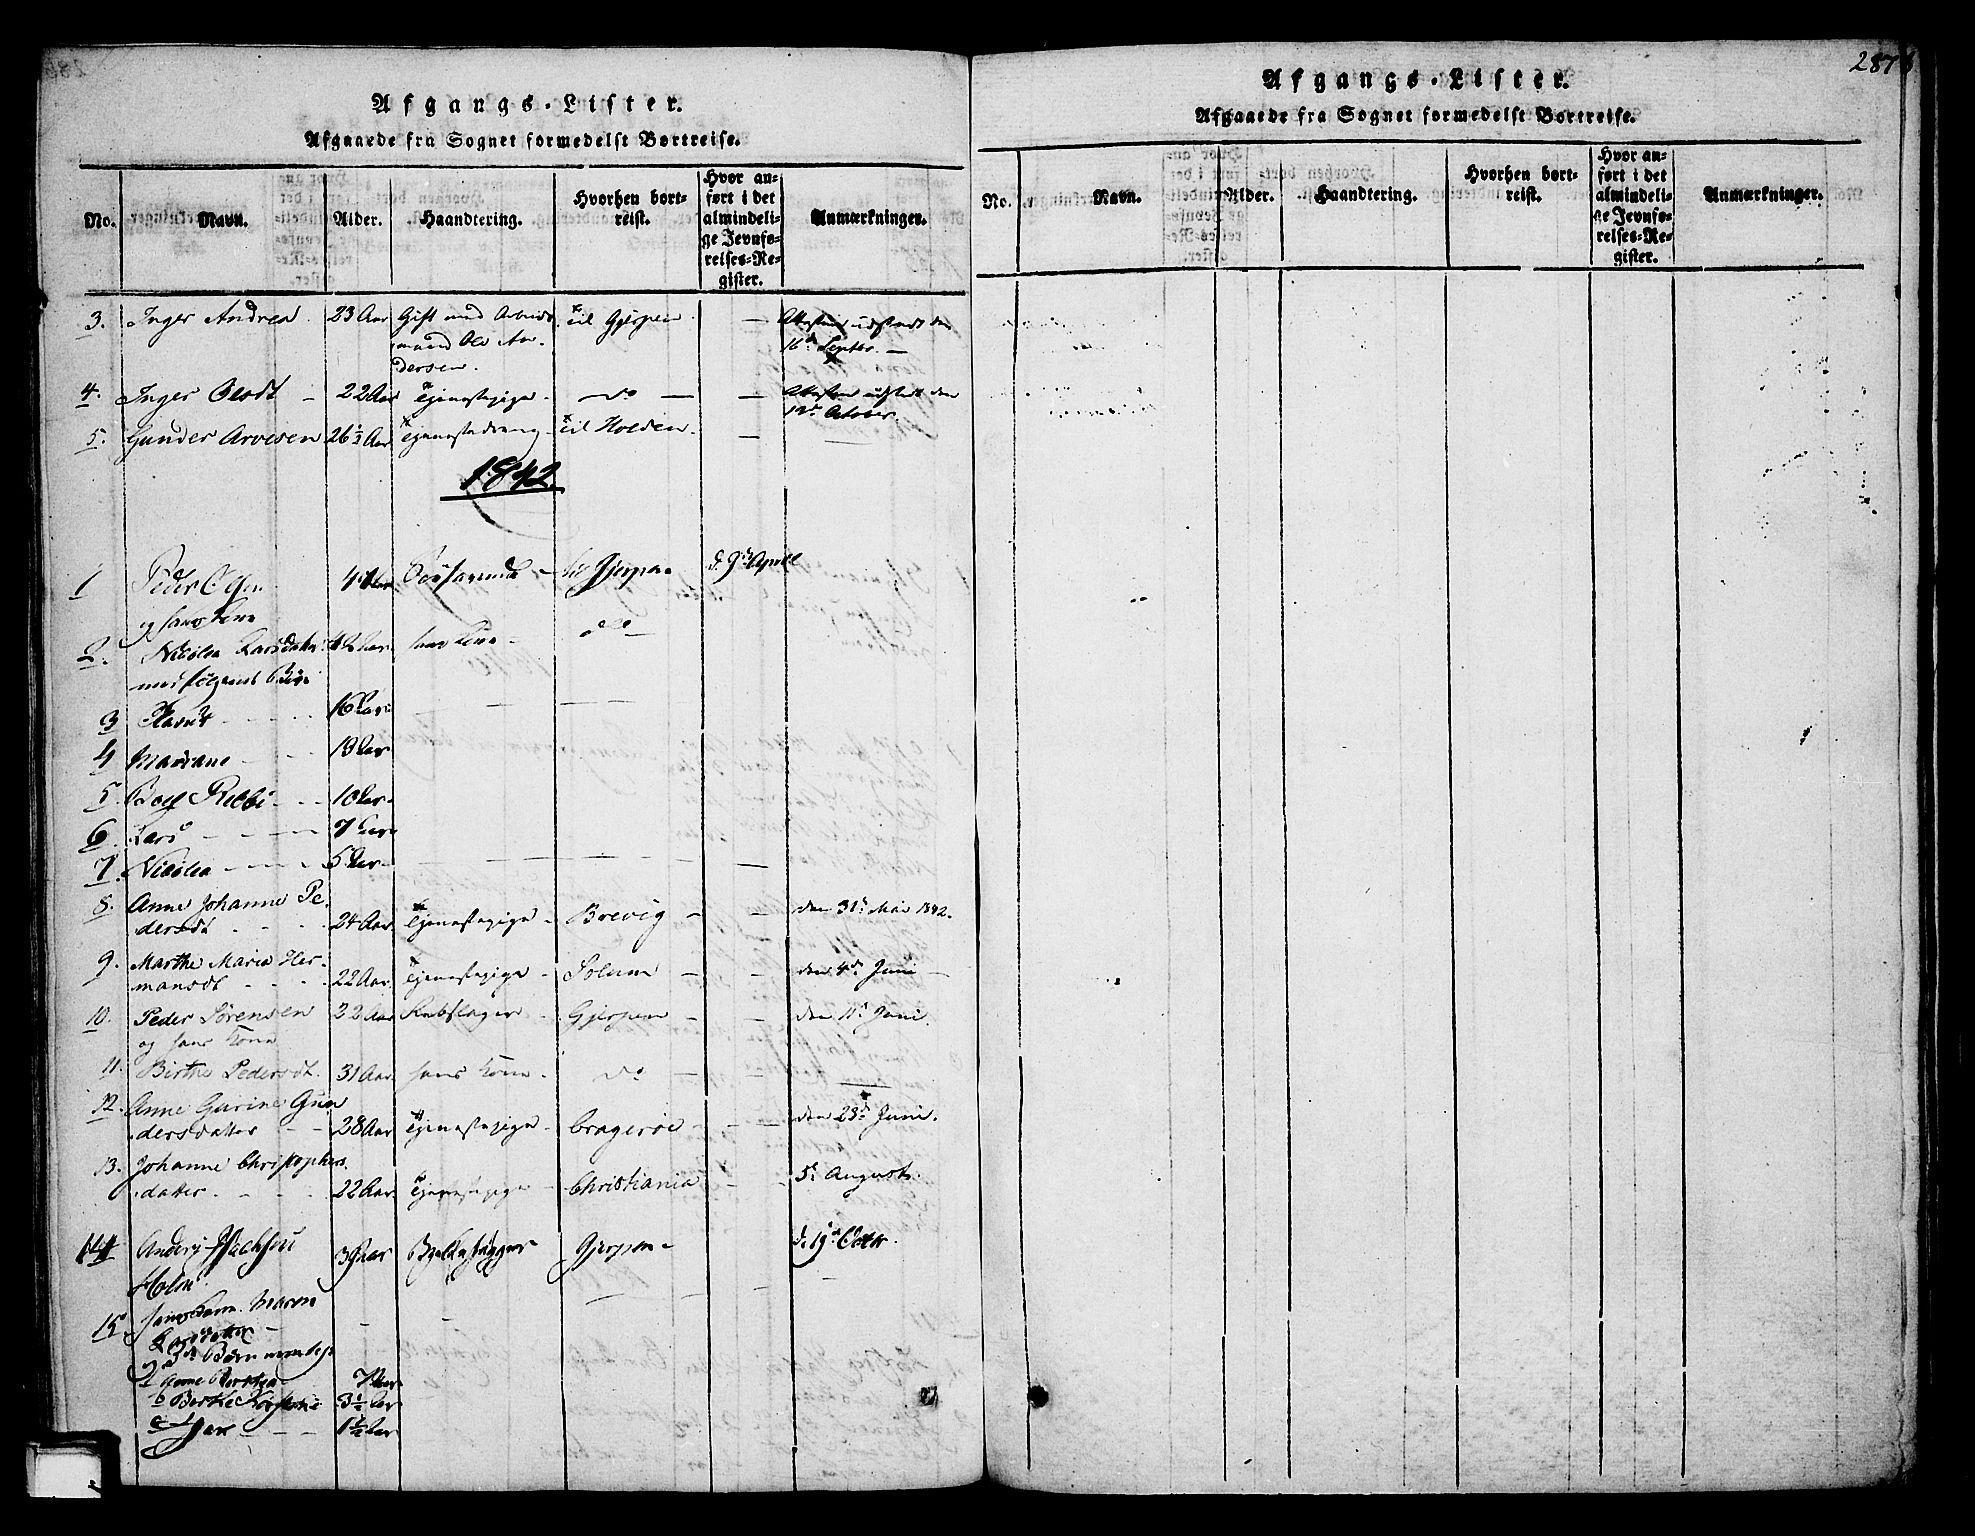 Afgangs-Lister.
Afgaaede fra Sognet formedelst Bortreise.
No. Navn. Alder. Haandtering. Hvorhen bortreist. Hvor anført i det almindelige Jevnførelses-Register. Anmærkninger.
3. Inger Andrea 23 Aar Gift med Arbeids til Gjerpen. — Attesten udstædt den
mand Ole An- 16de Septbr. —
dersen.
4. Inger Olsdt — 22 Aar Tjenestepige — do — — Attesten udstædt den
12te October
5. Gunder Arvesen 26 ½ Aar Tjenestedreng til Holden. —
1842
1 Peder Olsen 41 Aar til Gjerpen d. 9de April
og hans Kone
2. Nicolea Larsdatter 42 Aar hans Kone do
medfølgende Børn
3 16 Aar
4 Mariane 13 Aar
5. 10 Aar
6. Lars 7 Aar
7. Nicolea 5 Aar
8. Anne Johanne Pe-
dersdt 24 Aar Tjenestepige Brevig — — den 31te Mai 1842.
9. Marthe Maria Her-
mansdt 22 Aar Tjenestepige Solum — — den 4de Juni
10. Peder Sørensen 32 Aar Rebslager Gjerpen — — den 11te Juni.
og hans Kone
11. Birthe Pedersdt. 31 Aar hans Kone do — —
12. Anne Gurine Gun
dersdatter 28 Aar Tjenestepige Bragerøe — — den 23de Juni.
13. Johanne Christophers
datter 22 Aar Tjenestepige Christiania — — 5te August.
14 Anders Isachsen 39 Aar Gjerpen d. 19de Octbr.
Holm
15. hans Kone Maren
Larsdatter
3de Børn
Anne 7 Aar
b Berthe Kirstine 3 ½ Aar
c 1 ½ Aar
287
Afgangs-Lister.
Afgaaede fra Sognet formedelst Bortreise.
No. Navn. Alder. Haandtering. Hvorhen bortreist. Hvor anført i det almindelige Jevnførelses-Register. Anmærkninger.